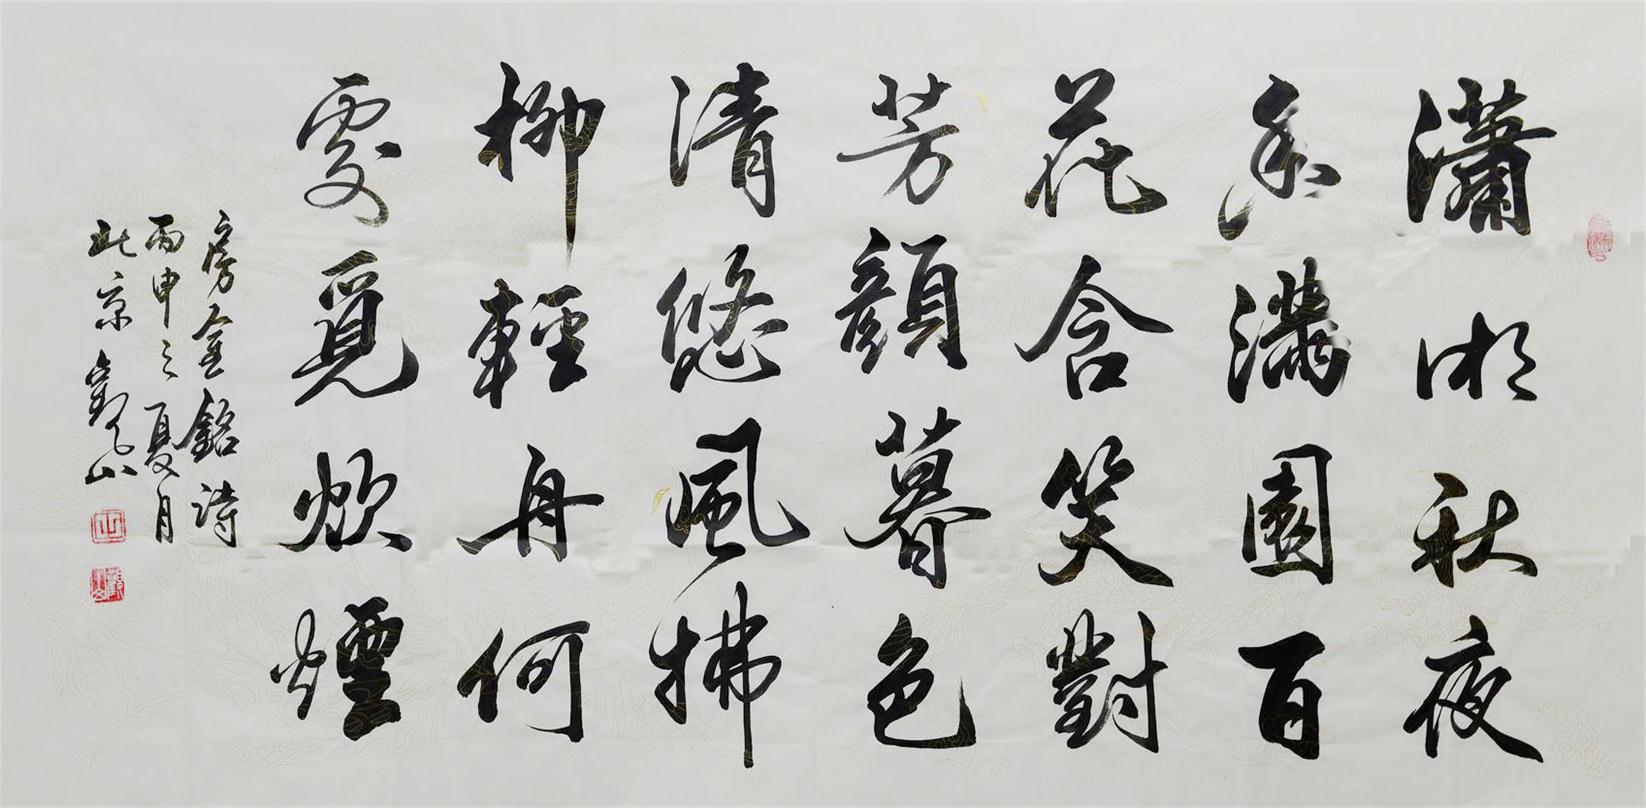 瀟湘秋夜
香滿園百
花含笑對
芳顏暮色
清悠風拂
柳輕舟何
處覓炊煙
房金銘詩
丙申之夏月
北京觀山